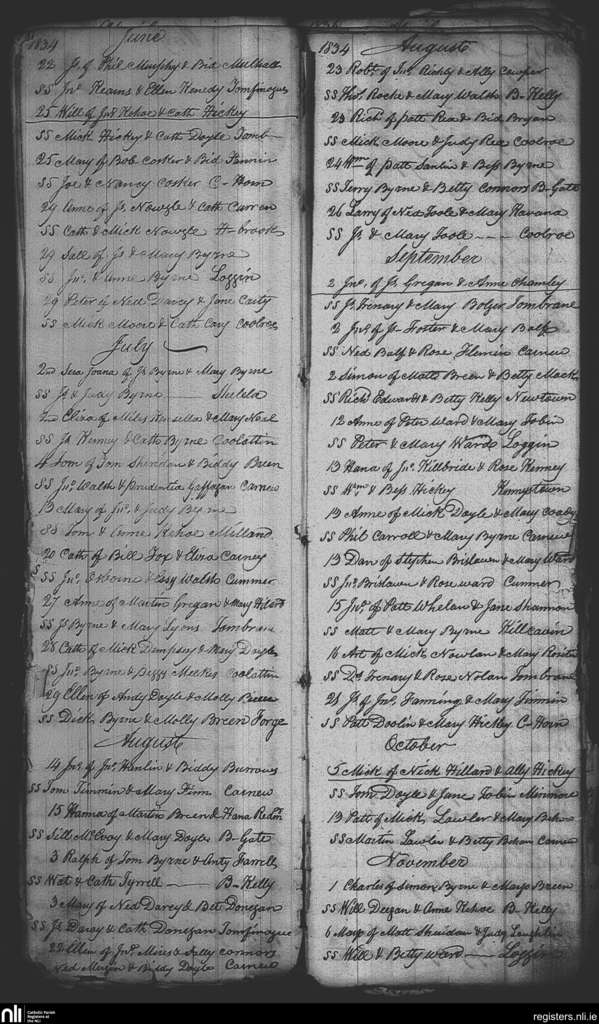 1834 June
22 Js. of Phil Murphy & Bid Mulhall
SS Jno. Keams & Ellen Kenedy Tomfinogue
25 Will of Jno. Kehoe & Cath Hickey
SS Mick Hickey & Cath Doyle Tomb
25 Mary of Bob Cosker & Bid
SS Joe & Nancy Cosker C-Horn
29 Anne of Js. Nowzle & Cath Curren
SS Cath & Mick Nowzle H-brook
29 Sall of Js & Mary Byrne
SS Jno. & Anne Byrne Loggin
29 Peter of Ned Darcy & Jane Carty
SS Mick Moore & Cath Cary Coolroe
July
2nd Sera Joana of Js Byrne & Mary Byrne
SS Js. & Judy Byrne
2nd Eliza of Miles Kinsellan & Mary Neil
SS Js Kenney & Cath Byrne Coolattin
4 Tom of Tom Sheridan & Biddy Breen
SS Jno. Walsh & Prudentia Gaffagan Carnew
13 Mary of Jno. & Judy Byrne
SS Tom & Anne Kehoe Milland
20 Cath of Bill Fox & Eliza Carney
SS Jno. Osborne & Essy Walsh Cummer
27 Anne of Martin Gregan & Mary
SS Js Byrne & Mary Lyons Tombrane
28 Cath of Mick Dempsey & Mary Doyle
SS Jno. Byrne & Meekes Coolattin
29 Ellen of Andy Doyle & Molly Breen
SS Dick Byrne & Molly Breen Forge
August
14 Jno. of Jno. Hanlin & Biddy Burrows
SS Tom Timmin & Mary Finn Carnew
15 Hanna of Martin Breen & Hana Redmn
SS Sill McEvoy & Mary Doyle B-Gate
3 Ralph of Tom Byrne & Anty Farrell
SS Wat & Cath Tyrrell B-Kelly
3 Mary of Ned Darcy & Bet Donegan
SS Js Darcy & Cath Donegan Tomfinogue
22 Ellen of Jno. Mires & Sally Connors
Ned & Biddy Doyle Carnew
1834 August
23 Robt. of Jno. Rickby & Ally Cowper
SS Thos. Roche & Mary Walsh B-Kelly
23 Richd of patt Rea & Bid Bryan
SS Mick Moore & Judy Rea Coolroe
24 Wm. of patt Sanlin & Bess Byrne
SS Terry Byrne & Betty Connors B-Gate
26 Larry of Ned Toole & Mary Kavana
SS Js & Mary Toole Coolroe
September
2 Jno. of Js. Gregan & Anne Chamley
SS Js. Trenary & Mary Bolger Tombrane
2 Jno. of Js Foster & Mary Balf
SS Ned Balf & Rose Flemin Carnew
2 Simon of Matt Breen & Betty Mack
SS Richd Edwards & Betty Kelly Newtown
12 Anne of Peter Ward & Mary Tobin
SS Peter & Mary Ward Loggin
13 Hana of Jno. Killbride & Rose Kenney
SS Wm. & Bess Hickey Kennystown
13 Anne of Mick Doyle & Mary Coady
SS Phil Carroll & Mary Byrne Carnew
13 Dan of Stephen Brislawn & Mary Ward
SS Jno. Brislawn & Rose Ward Cummer
15 Jno. of Patt Whelan & Jane Shannon
SS Matt & Mary Byrne Killcavin
16 Art of Mick Nowlan & Mary Rossiter
SS Ds. Trenary & Rose Nolan Tombrane
21 Js of Jno. Fanning & Mary Timmin
SS Patt Doolin & Mary Hickey C-Horn
October
5 Mick of Nick Hillard & Ally Hickey
SS Tom Doyle & Jane Tobin Minmore
19 Patt of Mick Lawler & Mary Behan
SS Martin Lawler & Betty Behan Carnew
November
1 Charles of Simon Byrne & Mary Breen
SS Will Deegan & Anne Kehoe B-Kelly
6 Mary of Matt Sheridan & Judy Laughlin
SS Will & Betty Ward Loggin
nli Catholic Parish Registers at the NLI
registers.nli.ie